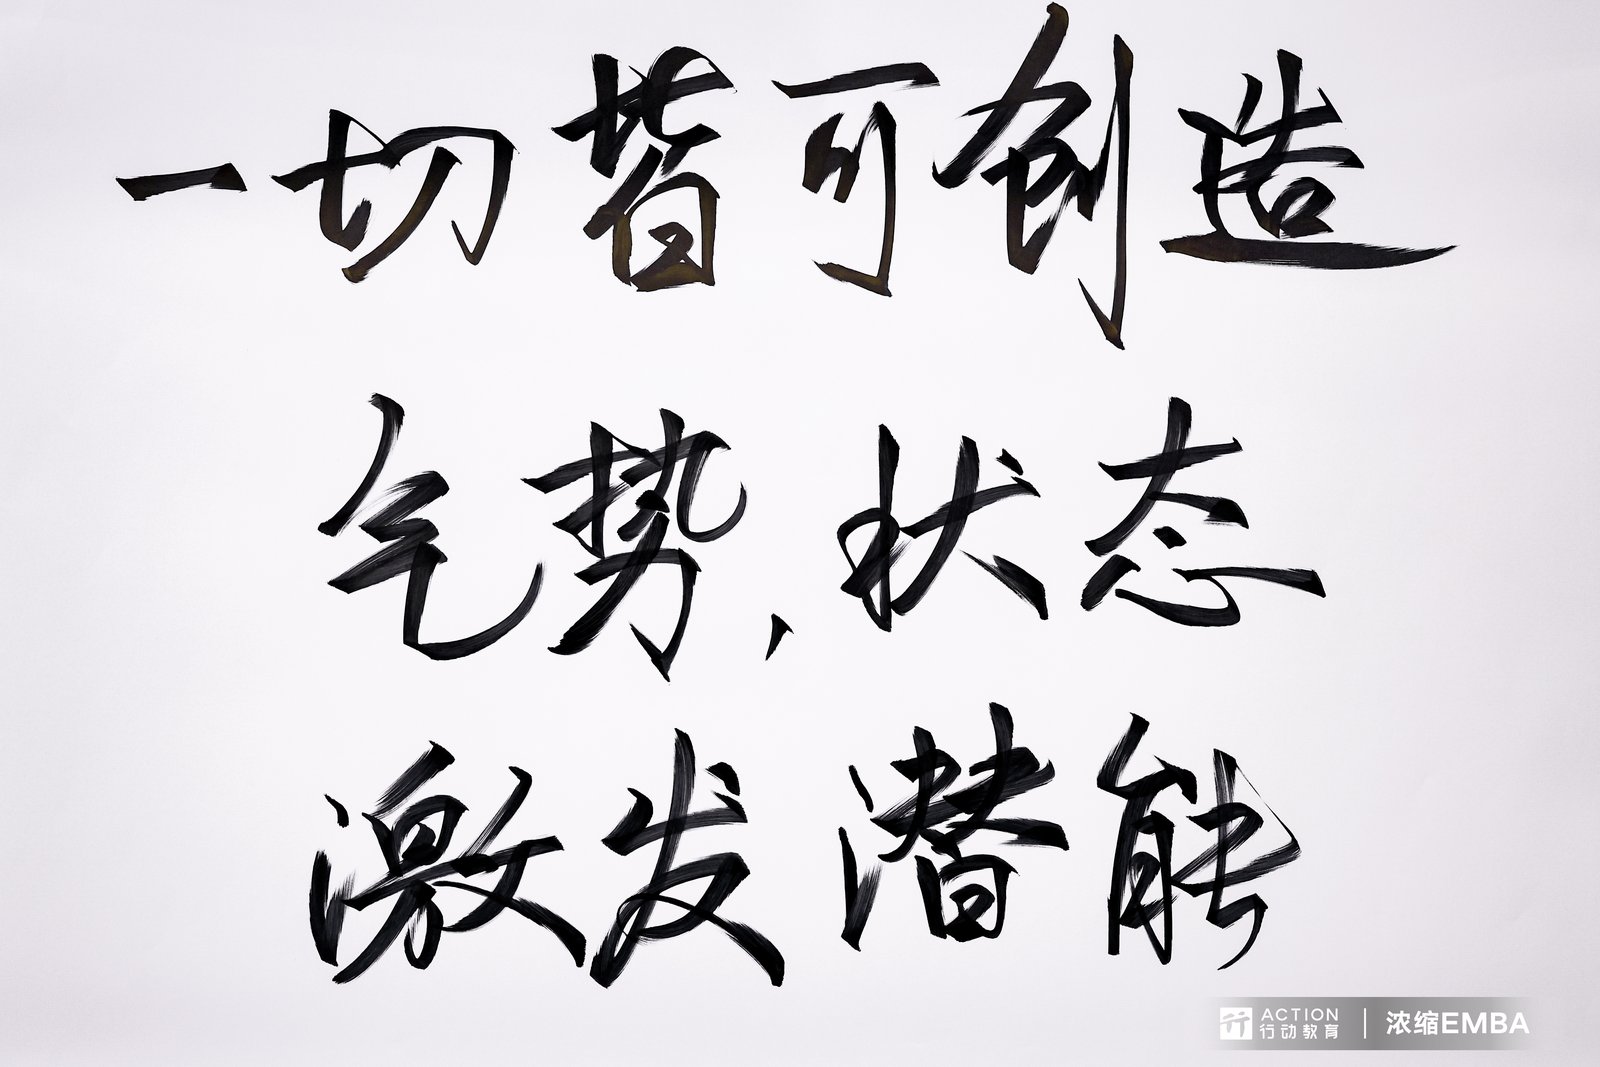 一切皆可创造
气势，状态
激发潜能
ACTION
行动教育
浓缩EMBA